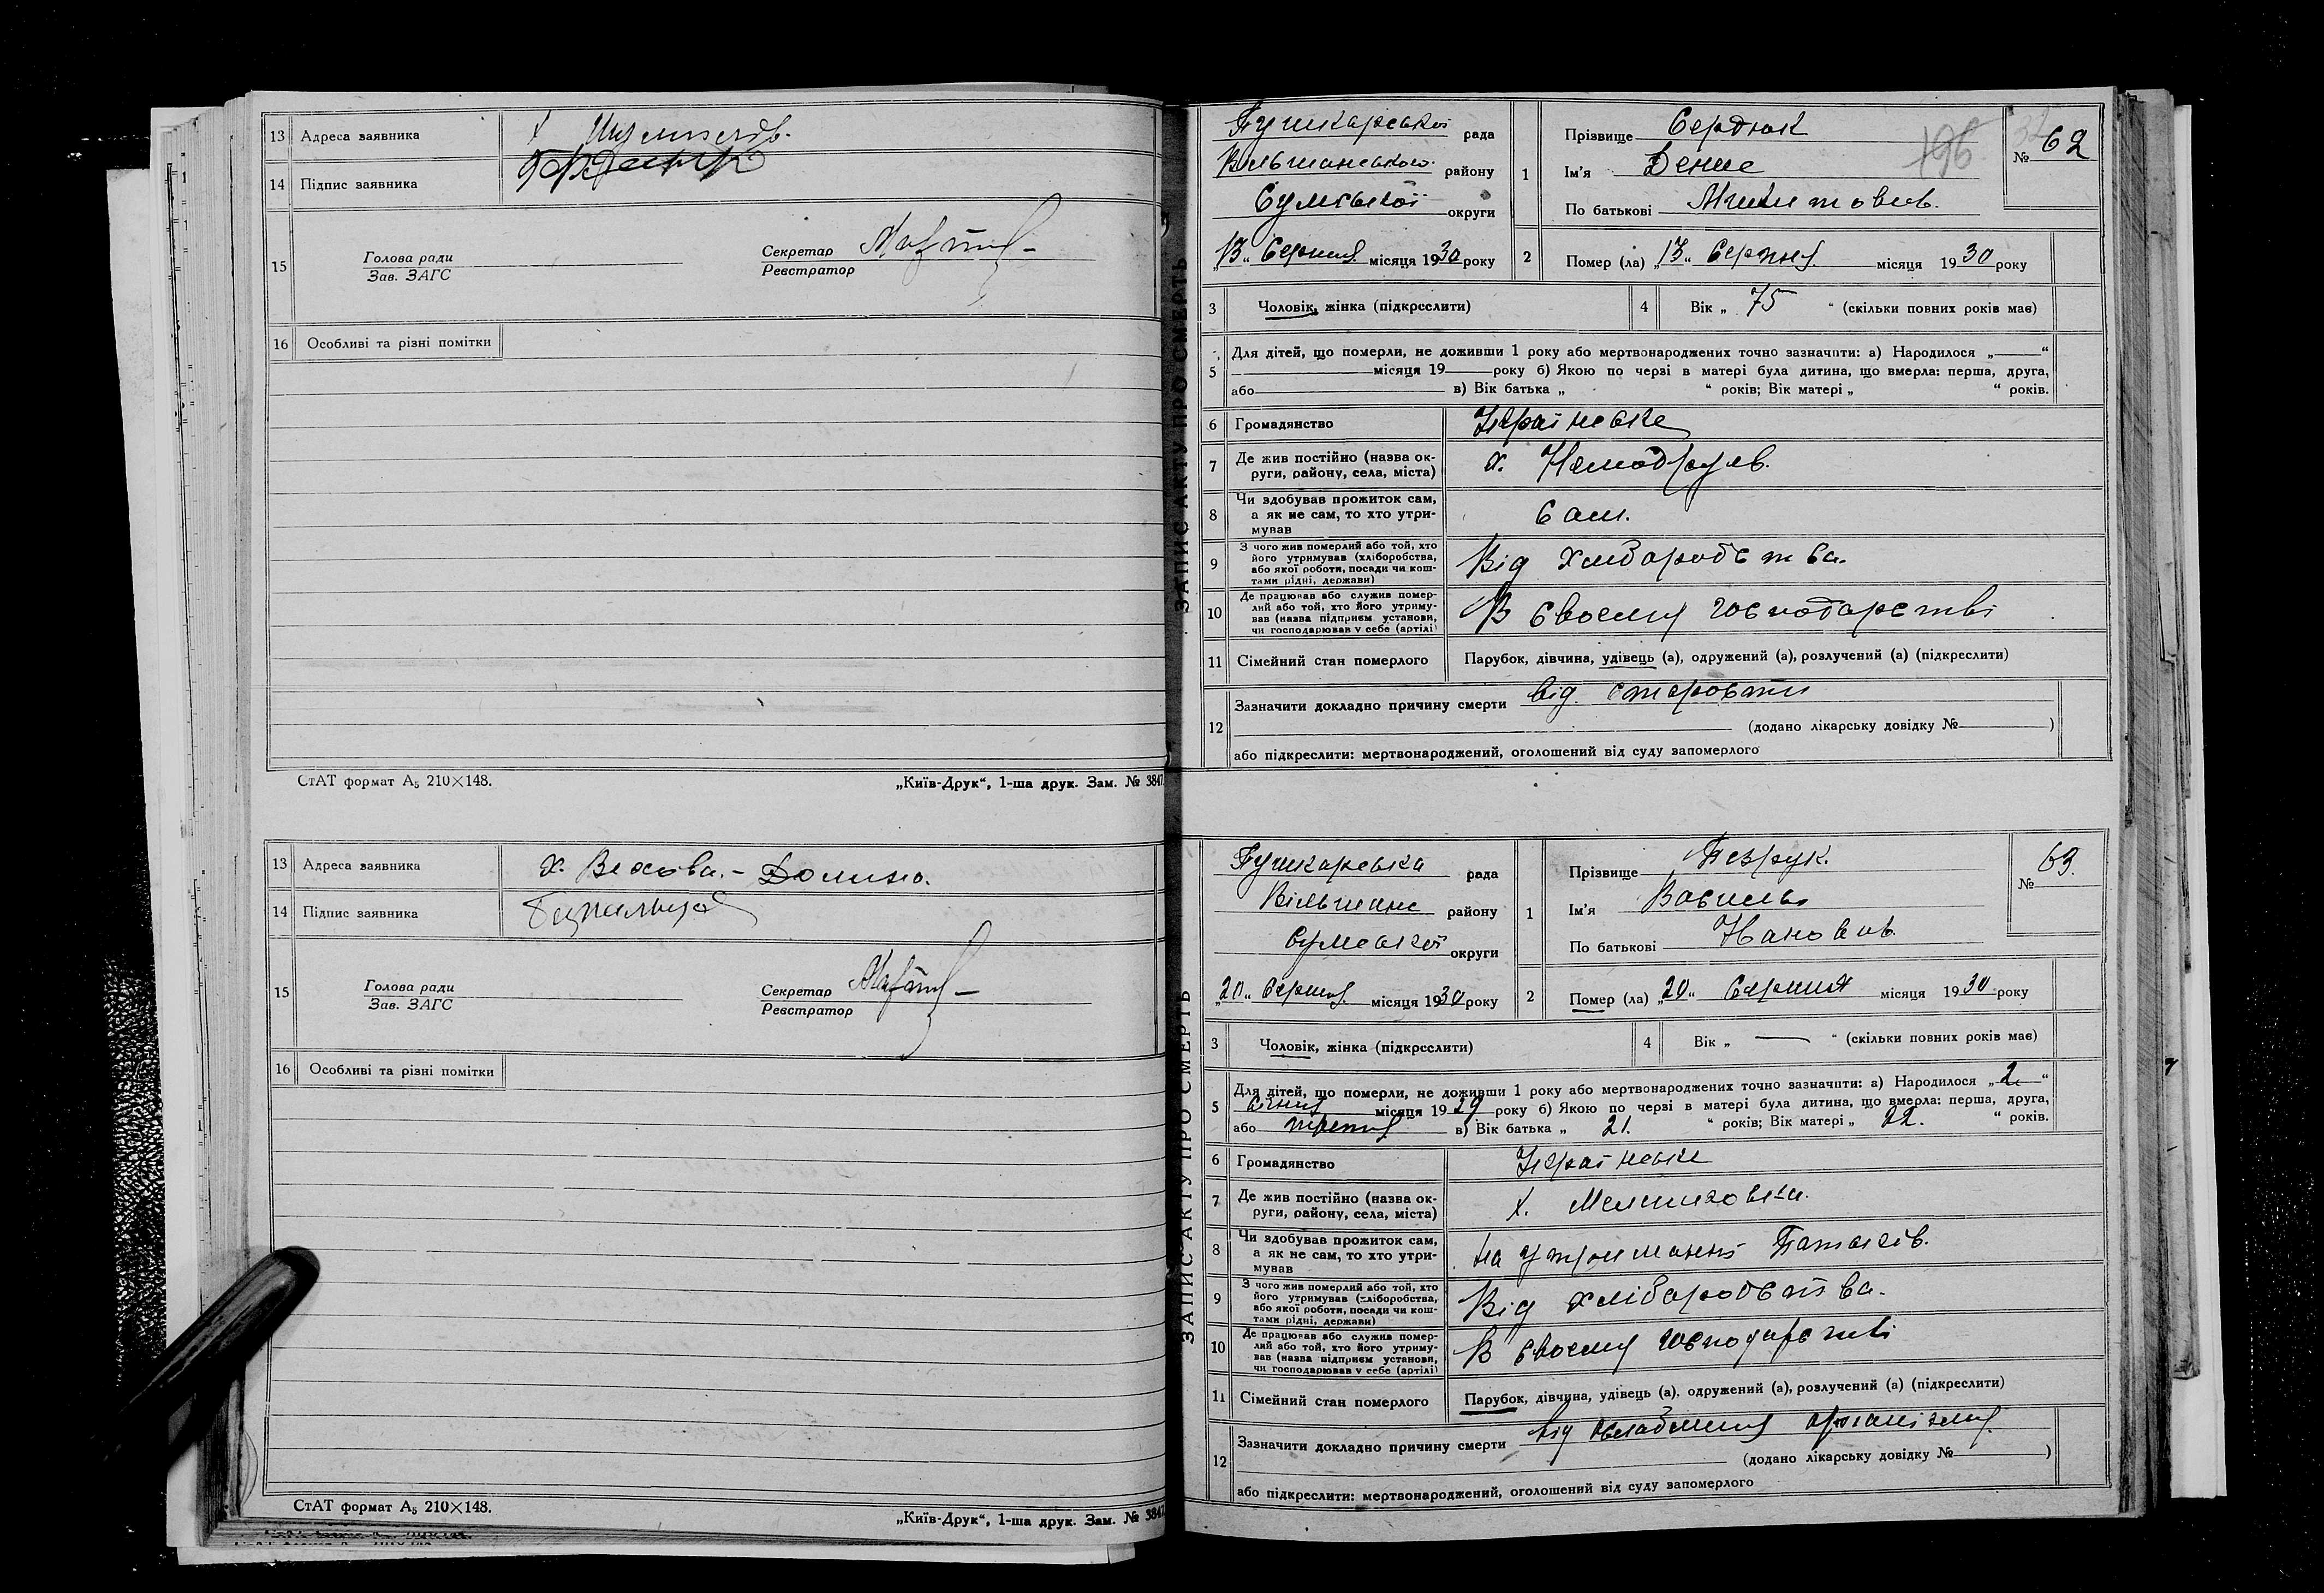 13 Адреса заявника х
14 Підпис заявника
15 Голова ради
Зав. ЗАГС
Секретар
Реєстратор
16 Особливі та різні помітки
СтАТ формат А5 210×148.
„Київ-Друк“, 1-ша друк. Зам. № 3847.
13 Адреса заявника х. Вехова.- Долина.
14 Підпис заявника
15 Голова ради
Зав. ЗАГС
Секретар
Реєстратор
16 Особливі та різні помітки
СтАТ формат А5 210×148.
„Київ-Друк“, 1-ша друк. Зам. № 3847.
ЗАПИС АКТУ ПРО СМЕРТЬ
Пушкарської рада
Вільшанського району
Сумської округи
„13“ Серпня місяця 1930 року
1 Прізвище Сердюк
Ім'я Денис
По батькові Микитович.
196
№ 62
2 Помер (ла) „13“ Серпня місяця 1930 року
3 Чоловік, жінка (підкреслити)
4 Вік „ 75 “ (скільки повних років має)
5 Для дітей, що померли, не доживши 1 року або мертвонароджених точно зазначити: а) Народилося „ “
місяця 19 року б) Якою по черзі в матері була дитина, що вмерла: перша, друга,
або в) Вік батька „ “ років; Вік матері „ “ років.
6 Громадянство Українське
7 Де жив постійно (назва округи, району, села, міста) х.
8 Чи здобував прожиток сам,
а як не сам, то хто утри-
мував Сам.
9 З чого жив померлий або той, хто
його утримував (хліборобства,
або якої роботи, посади чи кош-
тами рідні, держави) Від хліборобства.
10 Де працював або служив помер-
лий або той, хто його утриму-
вав (назва підприєм установи,
чи господарював у себе (артілі) В своєму господарстві
11 Сімейний стан померлого Парубок, дівчина, удівець (а), одружений (а), розлучений (а) (підкреслити)
12 Зазначити докладно причину смерти від старости
(додано лікарську довідку № )
або підкреслити: мертвонароджений, оголошений від суду запомерлого
ЗАПИС АКТУ ПРО СМЕРТЬ
Пушкарська рада
Вільшане району
Сумської округи
„20“ Серпня місяця 1930 року
1 Прізвище
Ім'я Василь
По батькові Іванович
№ 63.
2 Помер (ла) „20“ Серпня місяця 1930 року
3 Чоловік, жінка (підкреслити)
4 Вік „ — “ (скільки повних років має)
5 Для дітей, що померли, не доживши 1 року або мертвонароджених точно зазначити: а) Народилося „2“
січня місяця 1929 року б) Якою по черзі в матері була дитина, що вмерла: перша, друга,
або третя в) Вік батька „ 21. “ років; Вік матері „ 22. “ років.
6 Громадянство Українське
7 Де жив постійно (назва ок-
руги, району, села, міста) х.
8 Чи здобував прожиток сам,
а як не сам, то хто утри-
мував на утриманні Батьків.
9 З чого жив померлий або той, хто
його утримував (хліборобства,
або якої роботи, посади чи кош-
тами рідні, держави) Від хліборобства.
10 Де працював або служив помер-
лий або той, хто його утриму-
вав (назва підприєм установи,
чи господарював у себе (артілі) В своєму господарстві
11 Сімейний стан померлого Парубок, дівчина, удівець (а), одружений (а), розлучений (а) (підкреслити)
12 Зазначити докладно причину смерти від організму
(додано лікарську довідку № )
або підкреслити: мертвонароджений, оголошений від суду запомерлого